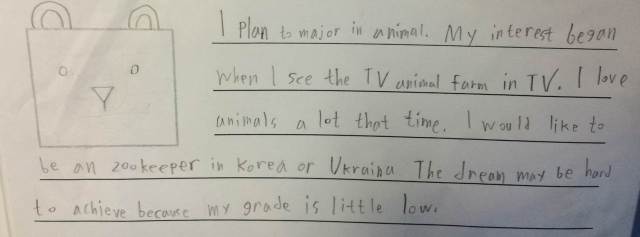 I Plan to major in animal. My interest began
when I see the TV animal farm in TV. I love
animals a lot that time. I would like to
be an zookeeper in Korea or Ukraina. The dream may be hard
to achieve because my grade is little low.